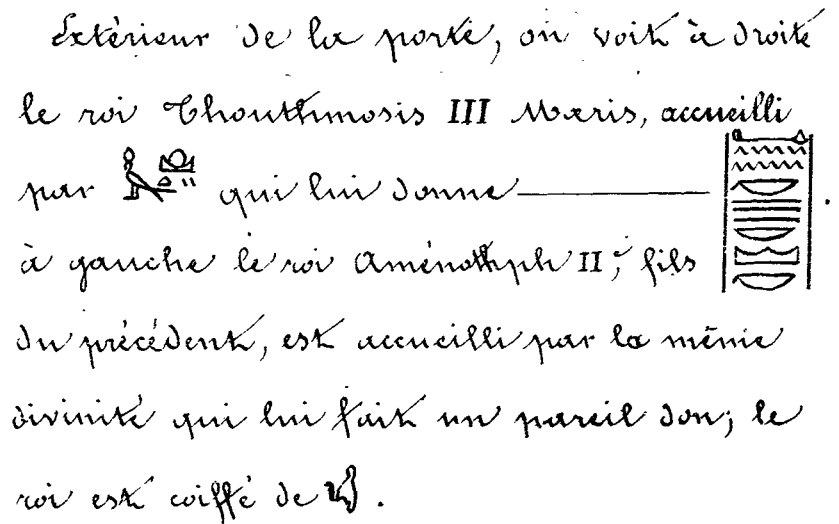 Extérieur de la porte, on voit à droite
le roi Thouthmosis III Mœris, accueilli
par qui lui donne
à gauche le roi Aménothph II, fils
du précédent, est accueilli par la même
divinité qui lui fait un pareil don; le
roi est coiffé de .